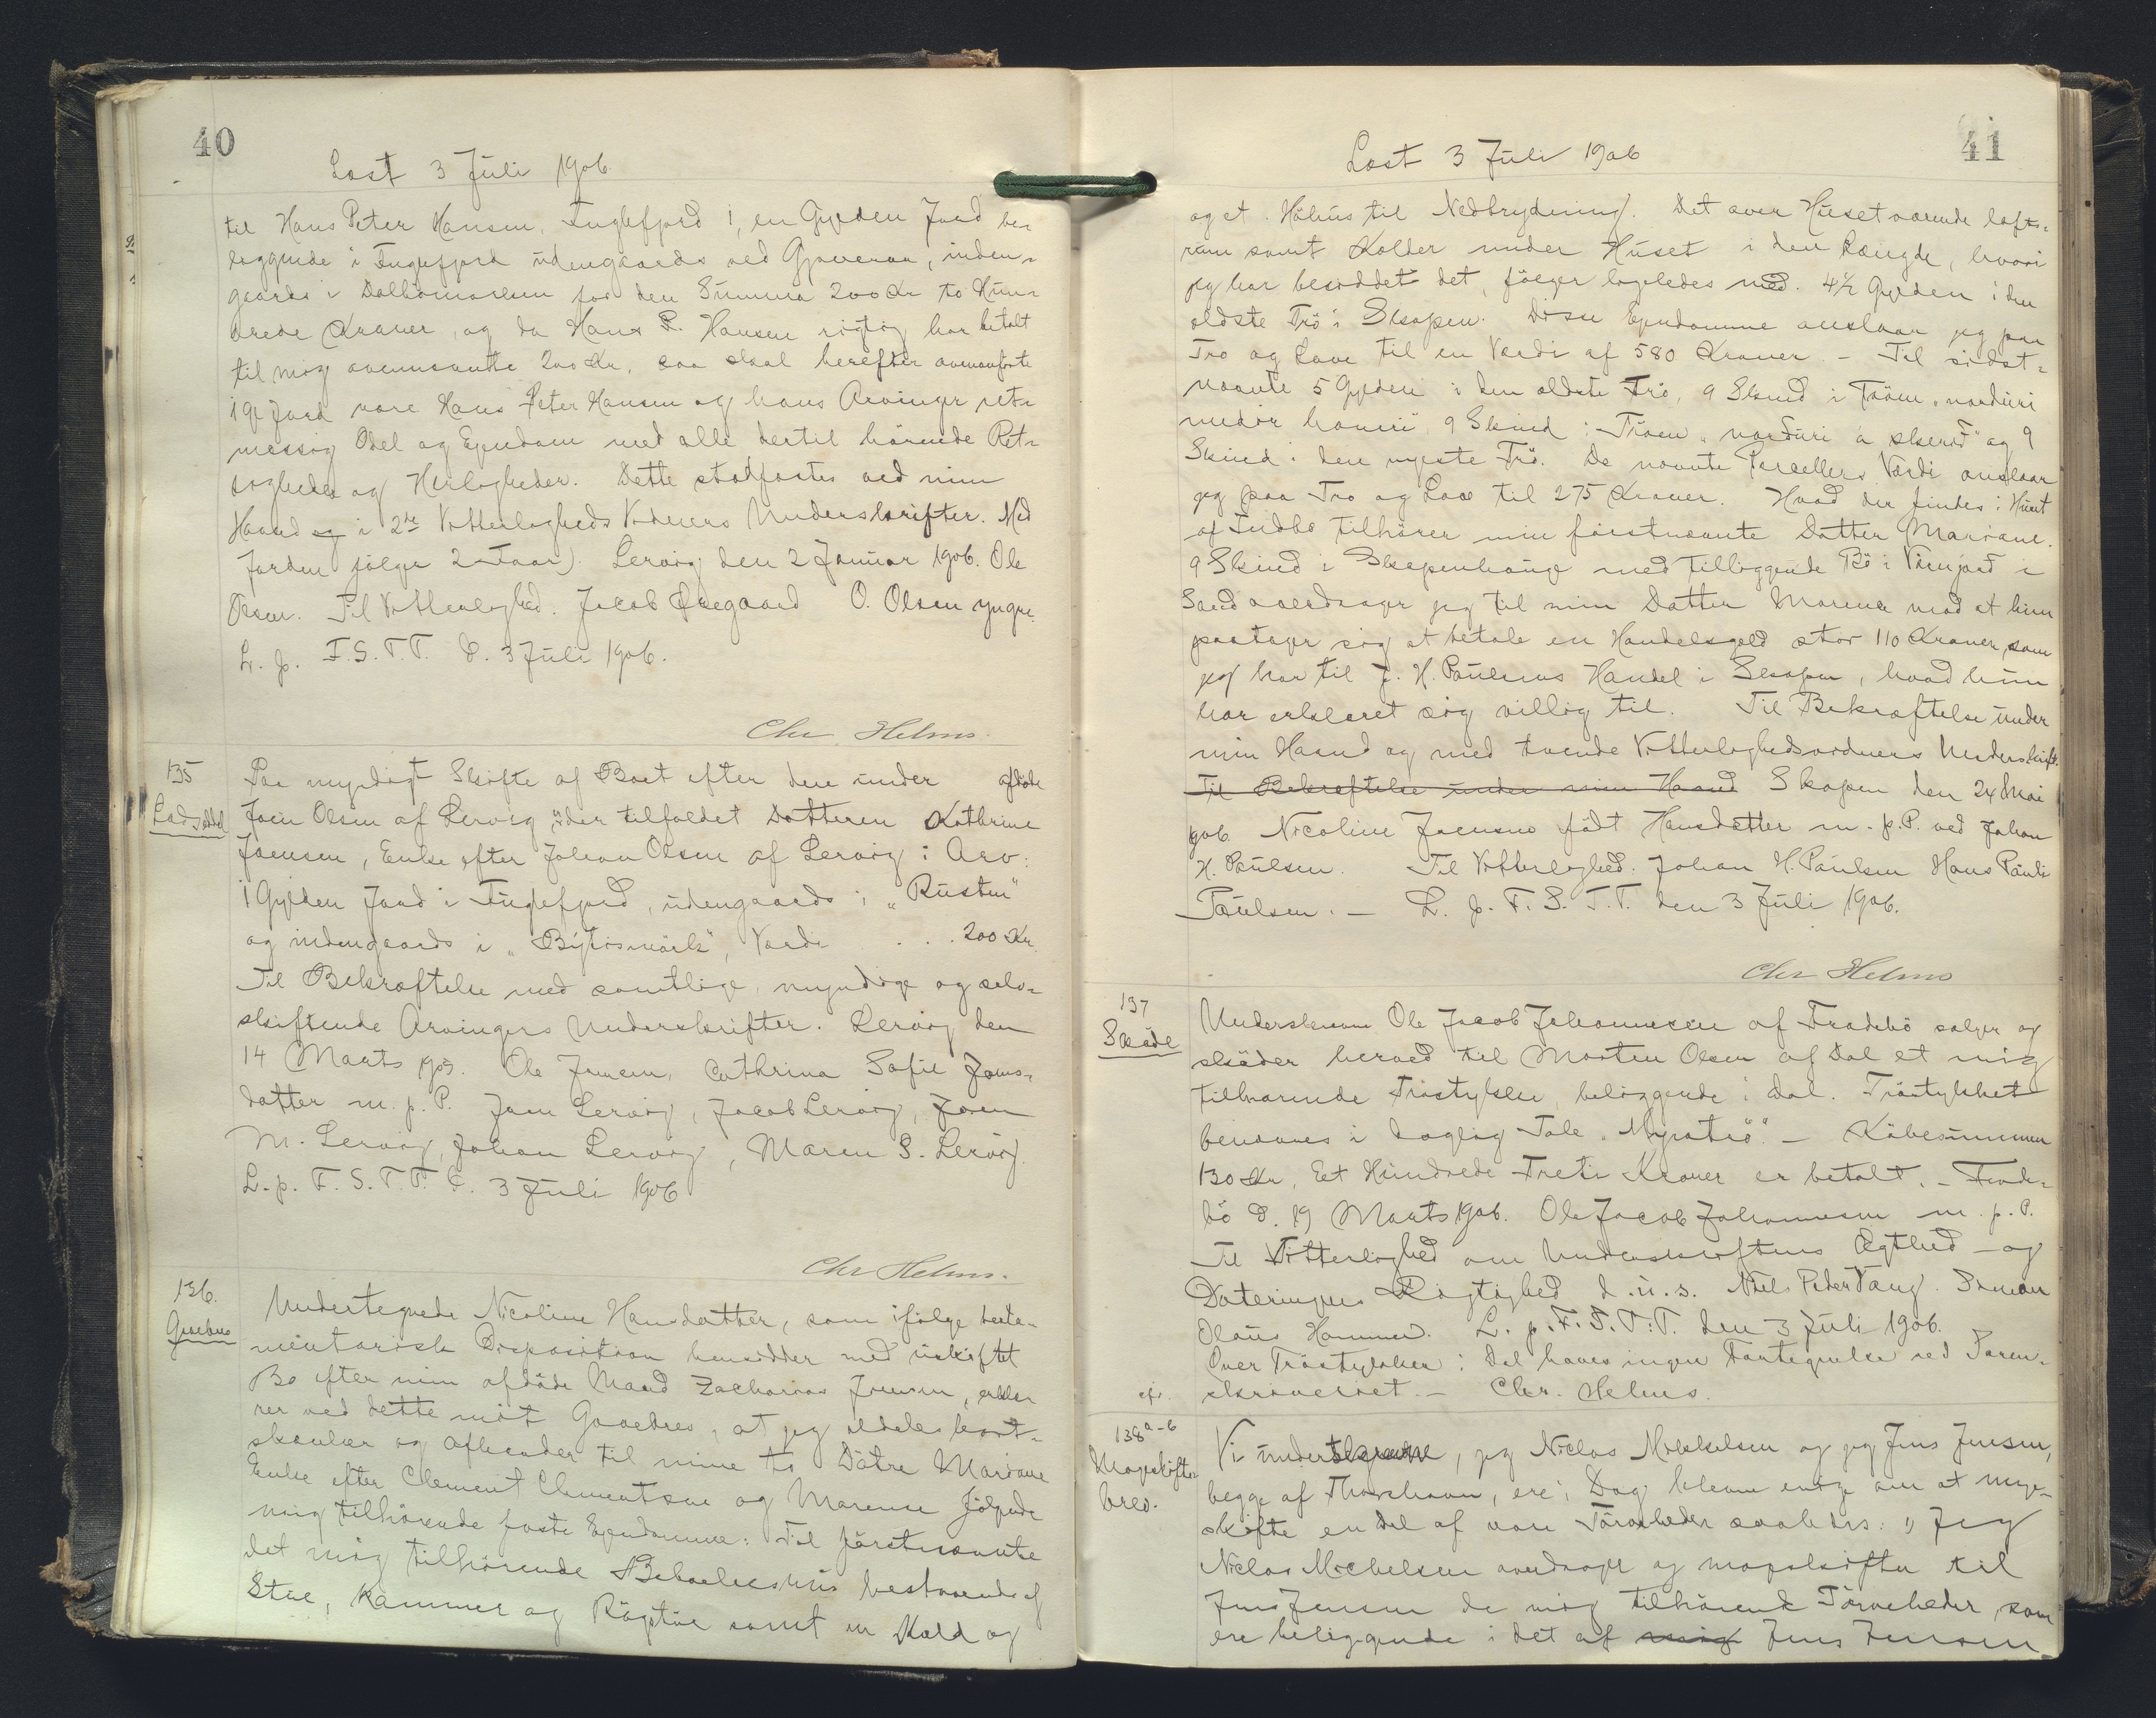 40
Læst 3 Juli 1906.
til Hans Peter Hansen, Fuglefjord 1, en Gylden Jord be-
liggende i Fuglefjord udengaards ved Gjoveraa, inden-
gaards i Dalhomarken for den Summa 200 Kr to Hun-
drede Kroner, og da Hans P. Hansen rigtig har betalt
til mig ovennævnte 200 Kr, saa skal herefter ovenanförte
1 Gl Jord være Hans Peter Hansen og hans Arvinger ret-
mæssig Odel og Ejendom med alle dertil hörende Ret-
tigheder og Herligheder. Dette stadfæstes ved min
Haand og i 2de Vitterligheds Vidners Underskrifter. Med
Jorden fölger 2 Faar). Lervig den 2 Januar 1906. Ole
Olsen. Til Vitterlighed. Jacob Öregaard O. Olsen yngre.
L. p. F.S.T.T. d. 3 Juli 1906.
Chr. Helms.
135
Lodseddel
Paa myndigt Skifte af Boet efter den under afdöde
Joen Olsen af Lervig, er der tilfaldet Datteren Kathrine
Joensen, Enke efter Johan Olsen af Lervig i Arv:
1 Gylden Jord i Fuglefjord, udengaards i "Rusten"
og indengaards i "Býtismörk", Værdi . . . 200 Kr.
Til Bekræftelse med samtlige, myndige og selv-
skiftende Arvingers Underskrifter. Lervig den
14 Marts 1903. Ole Joensen, Cathrina Sofie Joens-
datter m. p. P. Joen Lervig, Jacob Lervig, Joen
M. Lervig, Johan Lervig, Maren S. Lervig.
L. p. F. S. T. T. d. 3 Juli 1906
Chr Helms.
136.
Gavebrev
Undertegnede Nicoline Hansdatter, som ifölge testa-
mentarisk Disposition hensidder med uskiftet
Bo efter min afdöde Mand Zacharias Joensen, erklæ-
rer ved dette mit Gavebrev, at jeg aldeles bort-
skænker og afhænder til mine to Dötre Mariane
Enke efter Clement Clementsen og Marena fölgende
mig tilhörende faste Ejendomme: Til förstnævnte
det mig tilhörende Beboelseshus bestaaende af
Stue, Kammer og Rögstue samt en Kold og
41
Læst 3 Juli 1906
og et Höhus til Nedbrydning. Det over Huset værende lofts-
rum samt Kælder under Huset i den Længde, hvori
jeg har besiddet det, fölger ligeledes med. 4½ Gylden i den
ældste Trö i Skopen. Disse Ejendomme anslaar jeg paa
Tro og Love til en Værdi af 580 Kroner. - Til sidst-
nævnte 5 Gylden i den ældste Trö, 9 Skind i Tröen "norduri
nidör homrii", 9 Skind i Tröen "norduri á skerid" og 9
Skind i den nyeste Trö. De nævnte Parcellers Værdi anslaar
jeg paa Tro og Love til 275 Kroner. Hvad der findes i Huset
af Indbo tilhörer min förstnævnte Datter Mariane.
9 Skind i Skopenhauge med tilliggende Bö i Vörnjord i
Sand overdrager jeg til min Datter Marena mod at hun
paatager sig at betale en Handelsgæld stor 110 Kroner, som
jeg har til J. H. Paulsens Handel i Skopen, hvad hun
har erklæret sig villig til. Til Bekræftelse under
min Haand og med tvende Vitterlighedsvidners Underskrift.
Til Bekræftelse under min Haand Skopen den 24 Mai
1906. Nicoline Joensens födt Hansdatter m. p. P. ved Johan
H. Paulsen. Til Vitterlighed. Johan H. Paulsen Hans Pauli
Paulsen. - L. p. F. S. T. T. den 3 Juli 1906.
Chr Helms
137
Skøde
Underskrevne Ole Jacob Johannesen af Tradebö sælger og
sköder herved til Morten Olsen af Dal et mig
tilhørende Tröstykke, beliggende i Dal. Tröstykket
benævnes i daglig Tale "Myratrö". - Köbesummen
130 Kr, Et Hundrede Treti Kroner er betalt. - Trade-
bö d. 19 Marts 1906. Ole Jacob Johannesen m. p. P.
Til Vitterlighed om Underskriftens Ægthed - og
Dateringens Rigtighed d. u. s. Niels Peder Vang. Simon
Olaus Hammer. L. p. F. S. T. T. den 3 Juli 1906.
Over Tröstykker i Dal haves ingen Fortegnelse ved Soren-
skriveriet. - Chr. Helms.
cfr.
138 a-b
Mageskifte-
brev.
Vi underskrevne, jeg Niclas Mikkelsen og jeg Jens Jensen,
begge af Thorshavn, ere i Dag blevne enige om at mage-
skifte en Del af vore Törveheder saaledes: "Jeg
Niclas Michelsen overdrager og mageskifter til
Jens Jensen de mig tilhörende Törveheder, som
ere beliggende i det af mig Jens Jensen